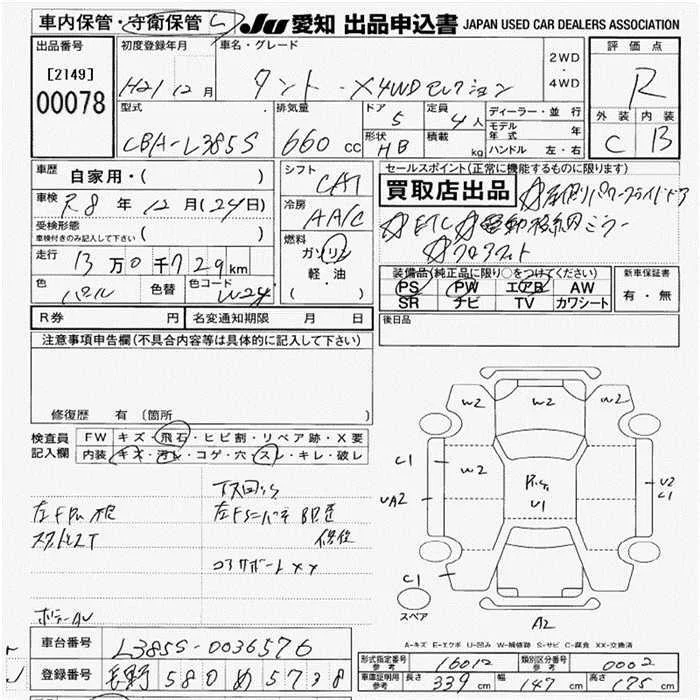 車内保管・守衛保管 し
JU 愛知 出品申込書 JAPAN USED CAR DEALERS ASSOCIATION
出品番号
[2149]
00078
初度登録年月
H21 12 月
車名・グレード
タント X4WDセレクション
2WD
・
4WD
評価点
R
外装 内装
C B
型式
CBA-L385S
排気量
660 cc
ドア
5
定員
4人
形状
HB
積載
kg
ディーラー・並行
モデル年式 年
ハンドル 左・右
車歴
自家用・( )
車検
R8年12月(24日)
受検形態
車検付きのみ記入して下さい ( )
走行
13万0千729km
色
パール
色替
色コード
W24
シフト
CAT
冷房
AA/C
燃料
ガソリン
軽・油
( ・ )
セールスポイント(正常に機能するものに限ります)
買取店出品 ☆左側パワースライドドア
☆ETC ☆電動格納ミラー
☆フロアマット
装備品(純正品に限り○をつけてください)
PS PW エアB AW
SR ナビ TV カワシート
新車保証書
有・無
R券 円
名変通知期限 月 日
後日品
注意事項申告欄(不具合内容等は具体的に記入して下さい)
修復歴 有(箇所 )
検査員
記入欄
FW キズ・飛石・ヒビ割・リペア跡・X要
内装 キズ・汚レ・コゲ・穴・スレ・キレ・破レ
下回サビ
左FPW不良
スタットレスT
コアサポートXX
W2 W2 W2
C1
W2
UA2
U1
U2
C1
C1
スペア
A2
A-キズ E-エクボ U-凹み W-補修跡 S-サビ C-腐食 XX-交換済
車台番号
L385S-0036576
登録番号
580 め 5738
形式指定番号
参考
16012
類別区分番号
参考
0002
車庫証明用
参考
長さ 339cm 幅 147cm 高さ 175cm